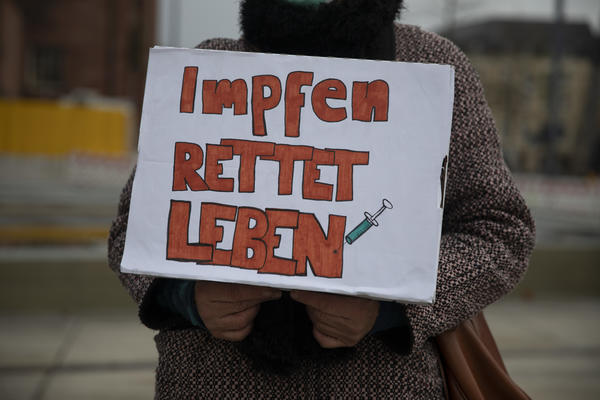 Impfen
RETTET
LEBEN